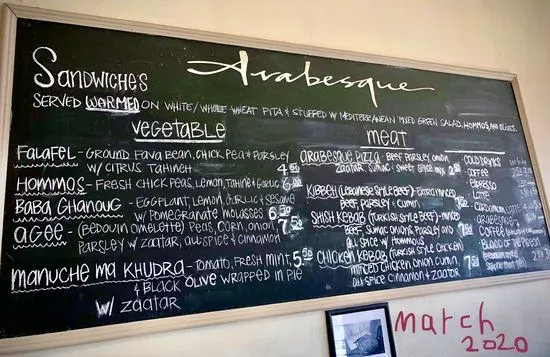 Arabesque
SANDWICHES
SERVED WARMED ON WHITE/WHOLE WHEAT PITA & STUFFED W/ MEDITERRANEAN MIXED GREEN SALAD, HOMMOS, AND OLIVES.
VEGETABLE
FALAFEL - GROUND FAVA BEAN, CHICK PEA & PARSLEY
W/ CITRUS TAHINEH 4.50
HOMMOS - FRESH CHICK PEAS, LEMON, TAHINE & GARLIC 6.00
BABA GHANOUG - EGGPLANT, LEMON, GARLIC & SESAME
W/ POMEGRANATE MOLASSES 6.50
AGEE - (BEDOUIN OMELETTE) PEAS, CORN, ONION,
PARSLEY W/ ZAATAR, ALLSPICE & CINNAMON 7.50
MANUCHE MA KHUDRA - TOMATO, FRESH MINT, 5.50
& BLACK OLIVE WRAPPED IN PIE
W/ ZAATAR
MEAT
ARABESQUE PIZZA - BEEF PARSLEY, ONION,
ZAATAR, SUMAC, SWEET SPICE MIX
KIBBEH (LEBANESE STYLE BEEF) - EXTRA MINCED
BEEF, PARSLEY & CUMIN 7.50
SHISH KEBAB (TURKISH STYLE BEEF) - MINCED
BEEF, SUMAC, ONIONS, PARSLEY AND
ALLSPICE W/ HOMMOUS
CHICKEN KEBAB (TURKISH STYLE CHICKEN)
MINCED CHICKEN ONION CUMIN, 7.50
ALLSPICE CINNAMON & ZAATAR
COLD DRINKS
COFFEE
ESPRESSO
LATTE
CARDAMOM LATTE
ARABESQUE
COFFEE
BLOOD OF THE PIGEON
march
2020